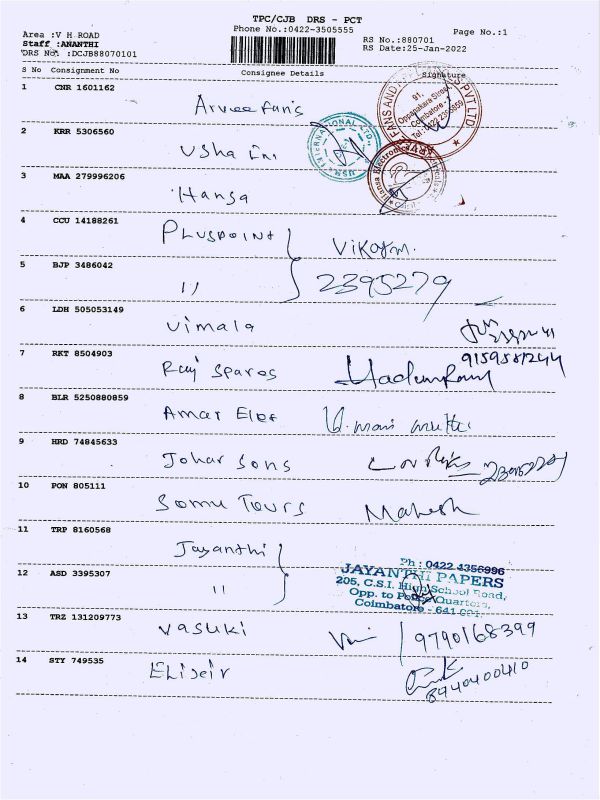 TPC/CJB DRS - PCT
Phone No.:0422-3505555
Page No.:1
Area :V H ROAD
Staff :ANANTHI
DRS No :DCJB88070101
RS No.:880701
RS Date:25-Jan-2022
S No Consignment No Consignee Details Signature
1 CNR 1601162
Arvee fans
FANS AND APPLIANCES PVT LTD
91,
Oppanakara Street,
Coimbatore -
Tel : 0422 2395859
2 KRR 5306560
Usha Int
INTERNATIONAL LTD.,
3 MAA 279996206
Hansa
Hansa Electronics
4 CCU 14188261
PLUSPOINT Vikram.
5 BJP 3486042
11 2395279
6 LDH 505053149
Vimala
7 RKT 8504903
9159581244
Raj Spares
8 BLR 5250880859
Amar Elec
9 HRD 74845633
Johar Sons
10 PON 805111
Somu Tours Mahesh
11 TRP 8160568
Jayanthi
12 ASD 3395307
11
Ph : 0422 4356996
JAYANTHI PAPERS
205, C.S.I. High School Road,
Opp. to Police Quarters,
Coimbatore - 641 001.
13 TRZ 131209773
Vasuki 9790168399
14 STY 749535
Elixir
8940400410